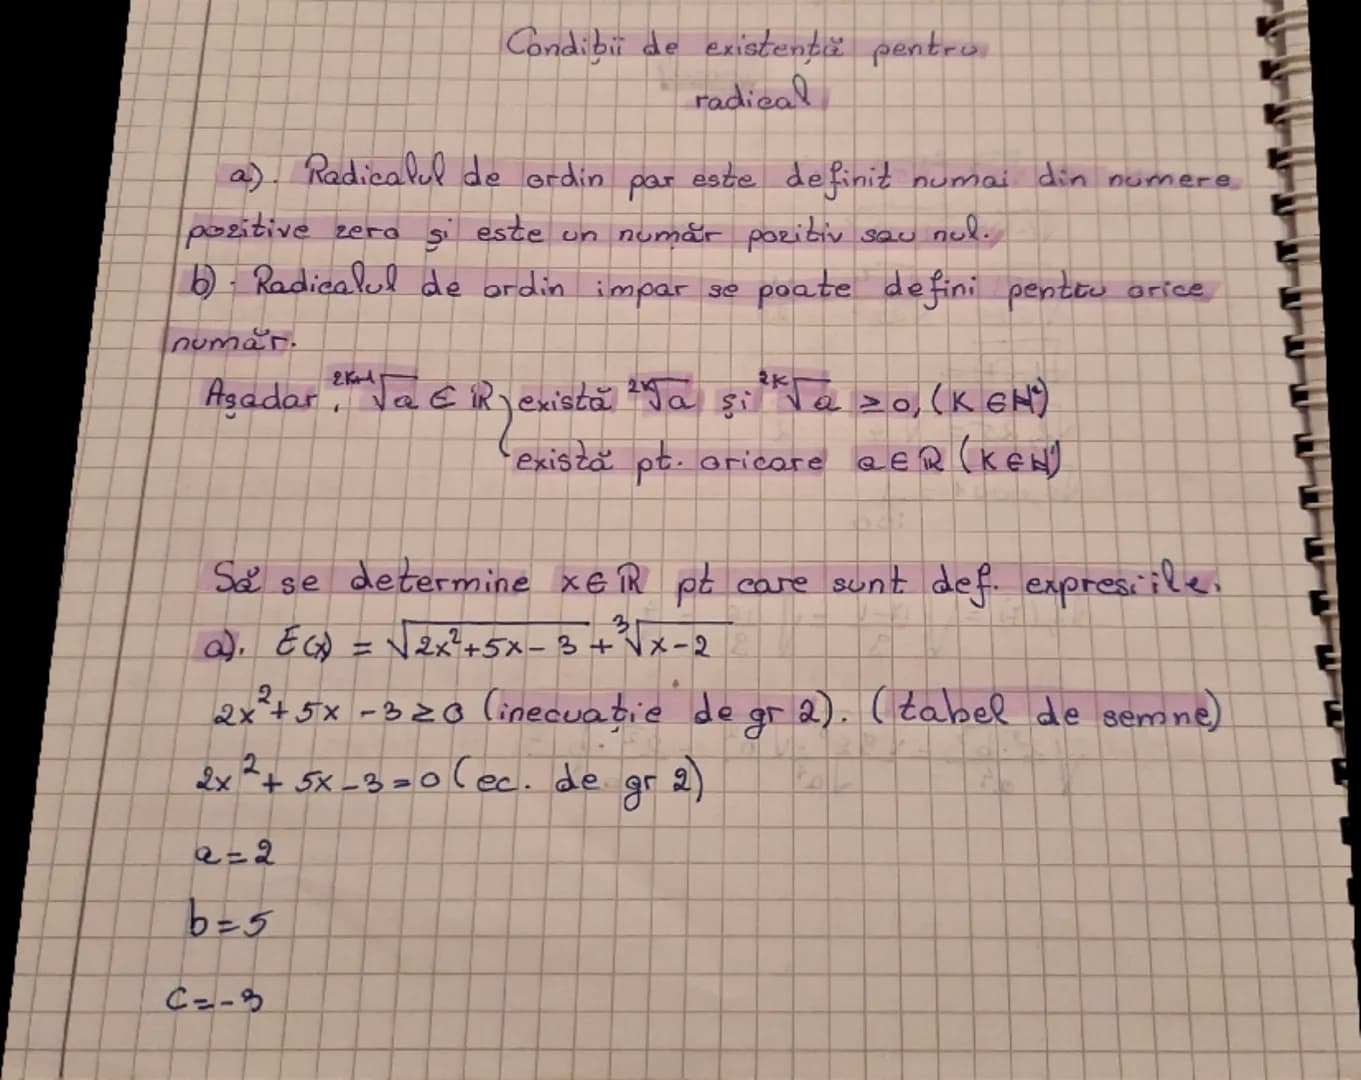 Condiții de existență pentru
radical
a). Radicalul de ordin par este definit numai din numere
pozitive zero și este un număr pozitiv sau nul.
b). Radicalul de ordin impar se poate defini pentru orice
număr.
Așadar, ²ᵏ⁺¹√a ∈ ℝ } există ²ᵏ√a și ²ᵏ√a ≥ 0, (K ∈ ℕ*)
există pt. oricare a ∈ ℝ (K ∈ ℕ*)
Să se determine x ∈ ℝ pt care sunt def. expresiile.
a). E(x) = √(2x²+5x-3) + ³√(x-2)
2x²+5x-3≥0 (inecuație de gr 2). (tabel de semne)
2x²+5x-3=0 (ec. de gr 2)
a=2
b=5
c=-3